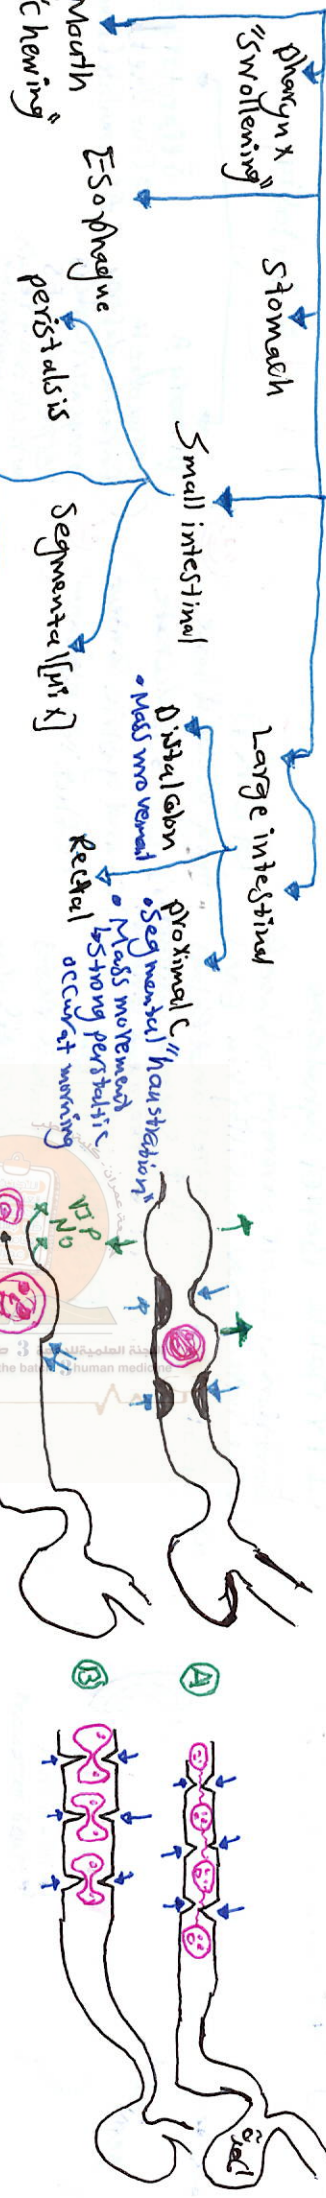 Mouth
"Chewing"
pharynx
"swollening"
Esophague
Stomach
Small intestinal
peristalsis
Segmental [Mix]
Large intestinal
Distal colon
• Mass movement
Rectal
proximal C
• Segmental "haustration"
• Mass movement
↳ Strong perstaltic
occur at morning
VIP
NO
A
B
اللجنة العلمية للدفعة 3
human medicine